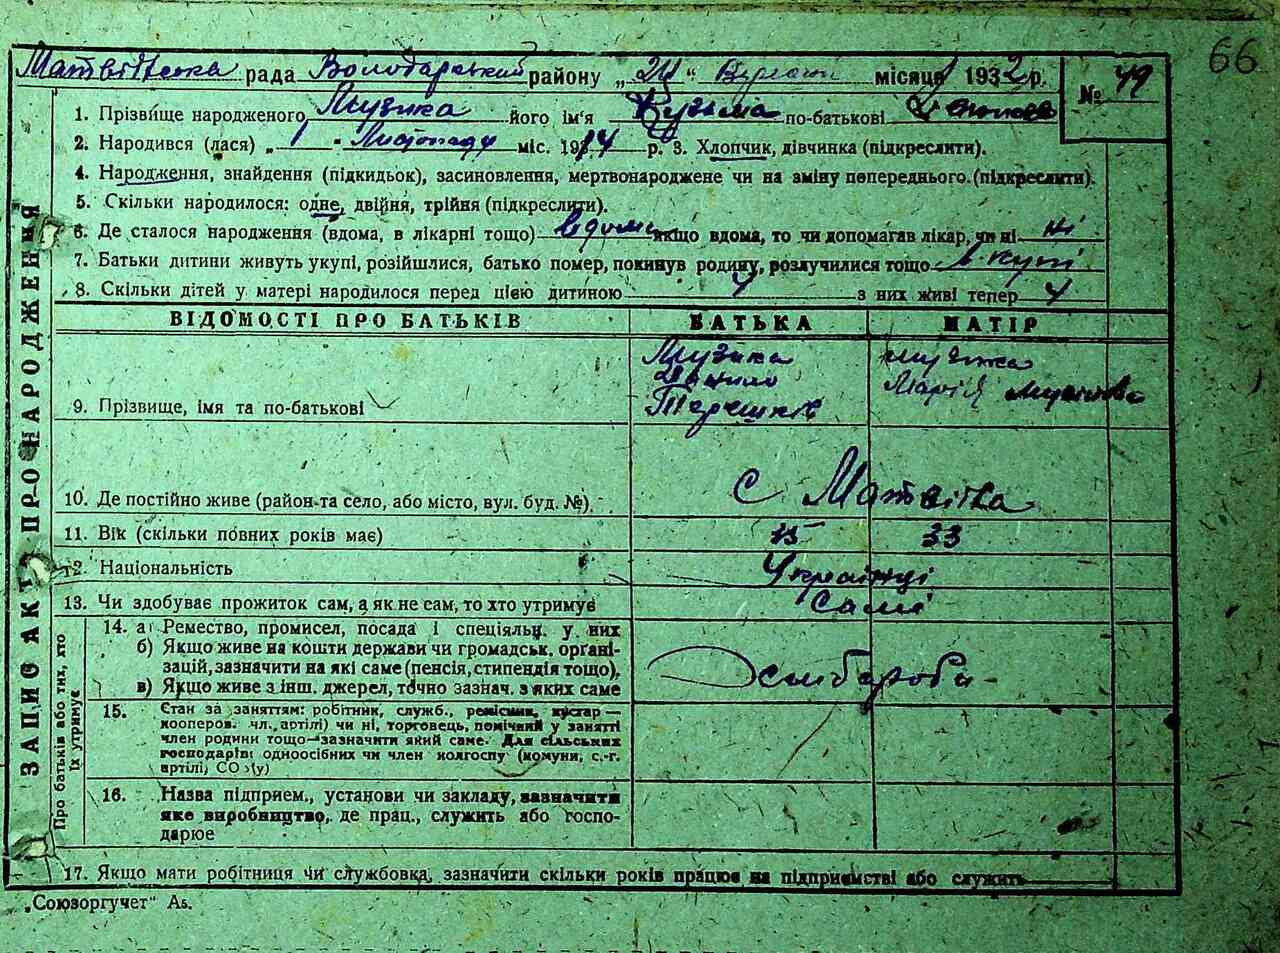 66
Матвіївська рада Володарський району „24“ місяця 1932 р. № 49
1. Прізвище народженого Музика його ім'я Кузьма по-батькові
2. Народився (лася) „1“ Листопаду міс. 1914 р. 3. Хлопчик, дівчинка (підкреслити).
4. Народження, знайдення (підкидьок), засиновлення, мертвонароджене чи на зміну попереднього (підкреслити).
5. Скільки народилося: одне, двійня, трійня (підкреслити).
6. Де сталося народження (вдома, в лікарні тощо) вдома якщо вдома, то чи допомагав лікар, чи ні ні
7. Батьки дитини живуть укупі, розійшлися, батько помер, покинув родину, розлучилися тощо в купі
8. Скільки дітей у матері народилося перед цією дитиною 4 з них живі тепер 4
ЗАПИС АКТУ ПРО НАРОДЖЕННЯ
ВІДОМОСТІ ПРО БАТЬКІВ БАТЬКА МАТІР
Музика Музика
Данило Марія
9. Прізвище, імя та по-батькові
10. Де постійно живе (район та село, або місто, вул. буд. №) с Матвіївка
11. Вік (скільки повних років має) 35 33
12. Національність Українці
13. Чи здобуває прожиток сам, а як не сам, то хто утримує Самі
Про батьків або тих, хто їх утримує
14. а) Ремество, промисел, посада і спеціяльн. у них
б) Якщо живе на кошти держави чи громадськ. органі-
зацій, зазначити на які саме (пенсія, стипендія тощо),
в) Якщо живе з інш. джерел, точно зазнач. з яких саме
Хлібороби
15. Стан за заняттям: робітник, служб., ремісник, кустар —
кооперов. чл. артілі) чи ні, торговець, помічний у занятті
член родини тощо—зазначити який саме. Для сільських
господарів: одноосібних чи член колгоспу (комуни, с.-г.
артілі, СОЗ'у)
16. Назва підприєм., установи чи закладу, зазначити
яке виробництво, де прац., служить або госпо-
дарює
17. Якщо мати робітниця чи службовка, зазначити скільки років працює на підприємстві або служить
„Союзоргучет“ А5.